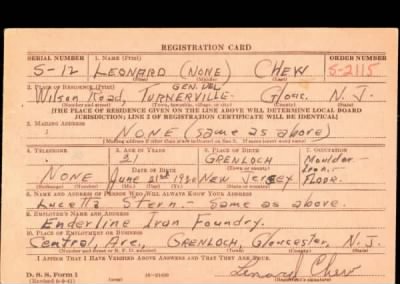 REGISTRATION CARD
SERIAL NUMBER 1. NAME (Print) ORDER NUMBER
S-12 LEONARD (NONE) CHEW S-2115
(First) (Middle) (Last)
2. PLACE OF RESIDENCE (Print) GEN. DEL
Wilson Road, TURNERVILLE- Glouc. N. J.
(Number and street) (Town, township, village, or city) (County) (State)
[THE PLACE OF RESIDENCE GIVEN ON THE LINE ABOVE WILL DETERMINE LOCAL BOARD
JURISDICTION; LINE 2 OF REGISTRATION CERTIFICATE WILL BE IDENTICAL]
3. MAILING ADDRESS
NONE (same as above)
[Mailing address if other than place indicated on line 2. If same insert word same]
4. TELEPHONE 5. AGE IN YEARS 6. PLACE OF BIRTH 7. OCCUPATION
21 GRENLOCH Moulder-
DATE OF BIRTH (Town or county) Iron-
NONE June 21st NEW JERSEY FLOOR.
(Exchange) (Number) (Mo.) (Day) (Yr.) (State or country)
8. NAME AND ADDRESS OF PERSON WHO WILL ALWAYS KNOW YOUR ADDRESS
Lucetta Stern - same as above.
9. EMPLOYER'S NAME AND ADDRESS
Enderline Iron Foundry.
10. PLACE OF EMPLOYMENT OR BUSINESS
Central Ave., GRENLOCH, Gloucester, N. J.
(Number and street or R. F. D. number) (Town) (County) (State)
I AFFIRM THAT I HAVE VERIFIED ABOVE ANSWERS AND THAT THEY ARE TRUE.
D. S. S. Form 1 Chew